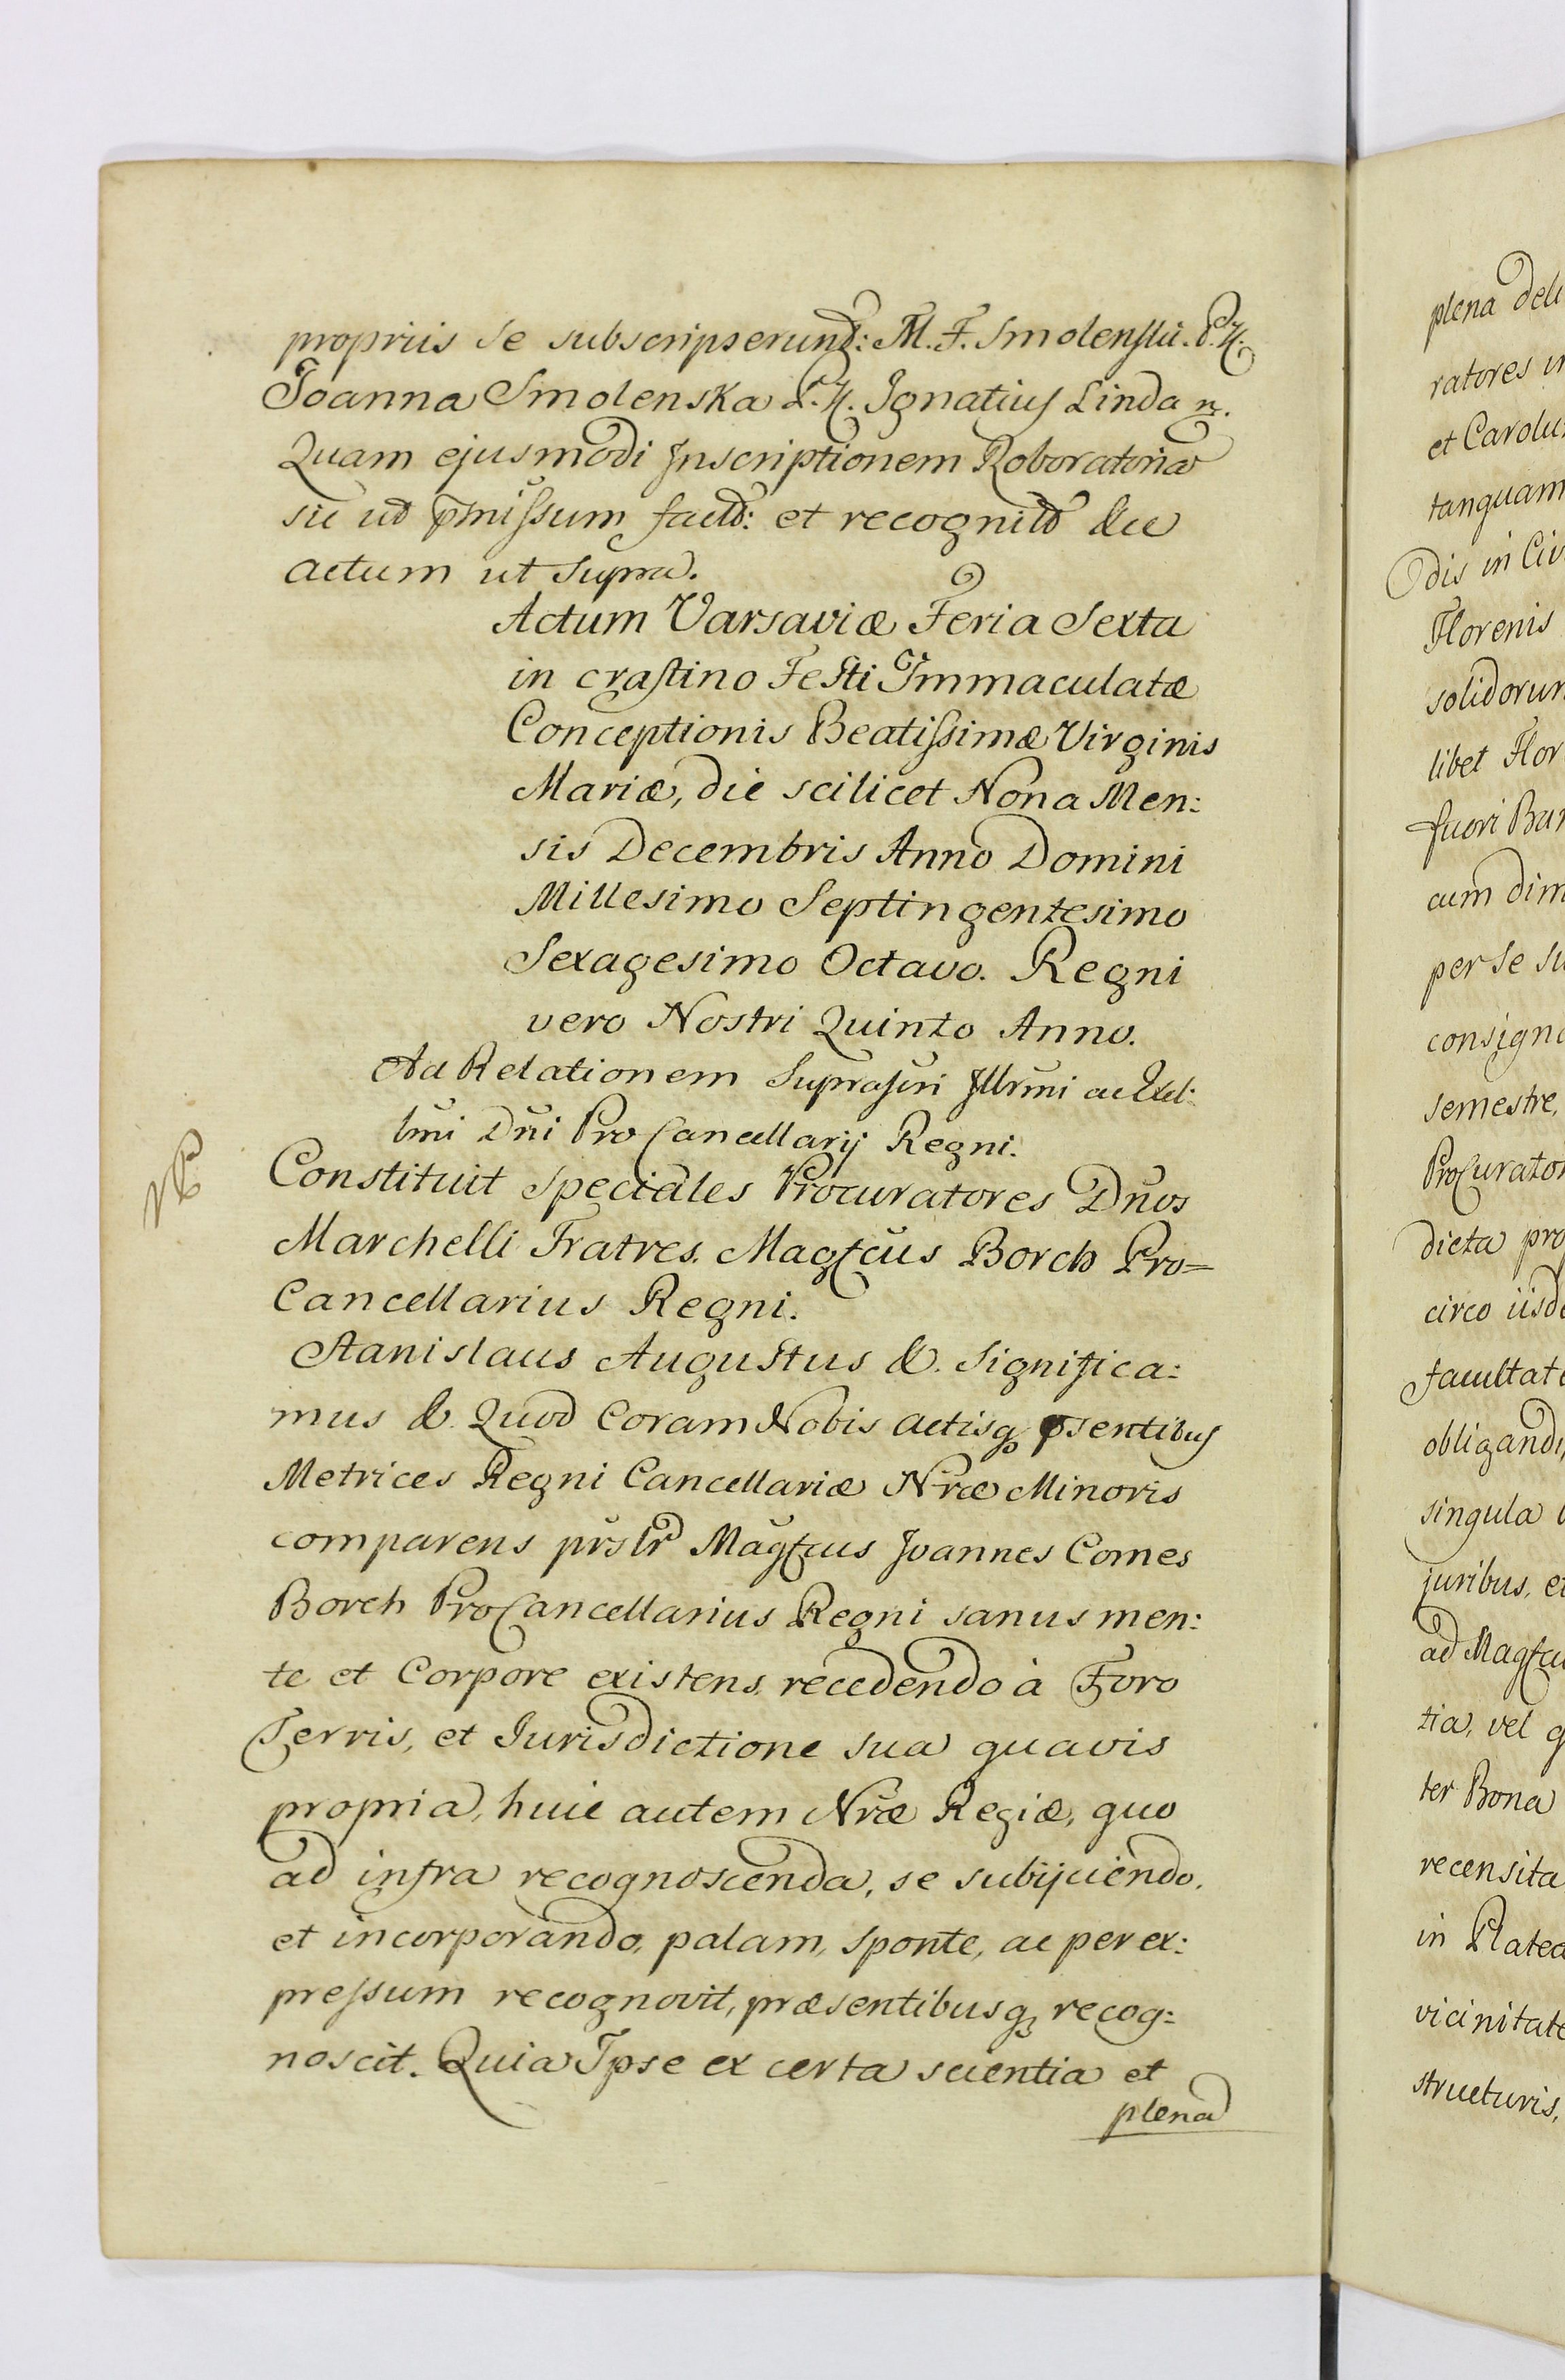 propriis se subscripserunt: M. F. Smolenski. P. K.
Joanna Smolenska S. K. Ignatius Linda
Quam ejusmodi Inscriptionem Roboratoria
sic ut p̃missum factã: et recognitã &ce
actum ut Supra.
Actum Varsaviæ Feria Sexta
in crastino Festi Immaculatæ
Conceptionis Beatissimæ Virginis
Mariæ, die scilicet Nona Men:
sis Decembris Anno Domini
Millesimo Septingentesimo
Sexagesimo Octavo. Regni
vero Nostri Quinto Anno.
Ad Relationem Suprascri Illrmi ac Excel:
lmi Dñi ProCancellarij Regni.
Constituit speciales Procuratores Dños
Marchelli Fratres. Magfcus Borch Pro=
Cancellarius Regni.
Stanislaus Augustus &. Significa:
mus & Quod Coram Nobis actisq psentibus
Metrices Regni Cancellariæ Nræ Minoris
comparens prslr Magfcus Joannes Comes
Borch ProCancellarius Regni sanus men:
te et Corpore existens recedendo à Foro
Terris, et Jurisdictione sua quavis
propria, huic autem Nræ Regiæ, quo
ad infra recognoscenda, se subijciendo,
et incorporando, palam, sponte, ac per ex:
pressum recognovit, præsentibusq recog:
noscit. Quia Ipse ex certa scientia et
plena
plena deli
ratores in
et Carolu
tanquam
dis in Civ
Florenis
solidorum
libet Flor
fuori Bar
cum dim
per se su
consigna
semestre,
ProCurator
dicta pro
circo iisde
facultate
obligandi,
singula
juribus, et
ad Magfcu
tia, vel q
ter Bona
recensita
in Platea
vicinitate
structuris,